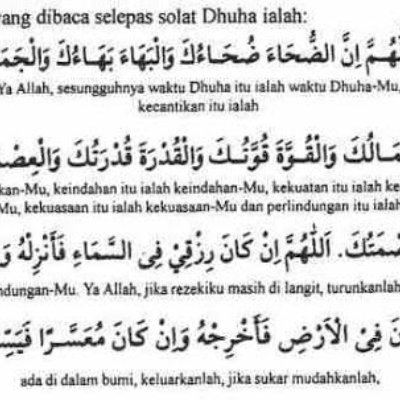 yang dibaca selepas solat Dhuha ialah:
إِنَّ الضُّحَاءَ ضُحَاءُكَ وَالْبَهَاءَ بَهَاءُكَ
Ya Allah, sesungguhnya waktu Dhuha itu ialah waktu Dhuha-Mu,
kecantikan itu ialah
وَالْقُوَّةَ قُوَّتُكَ وَالْقُدْرَةَ قُدْرَتُكَ
kan-Mu, keindahan itu ialah keindahan-Mu, kekuatan itu ialah ke
Mu, kekuasaan itu ialah kekuasaan-Mu dan perlindungan itu ialah
اَللّٰهُمَّ اِنْ كَانَ رِزْقِيْ فِى السَّمَاءِ فَأَنْزِلْهُ
ndungan-Mu. Ya Allah, jika rezekiku masih di langit, turunkanlah
فِيْ الْاَرْضِ فَأَخْرِجْهُ وَاِنْ كَانَ مُعَسَّرًا
ada di dalam bumi, keluarkanlah, jika sukar mudahkanlah,